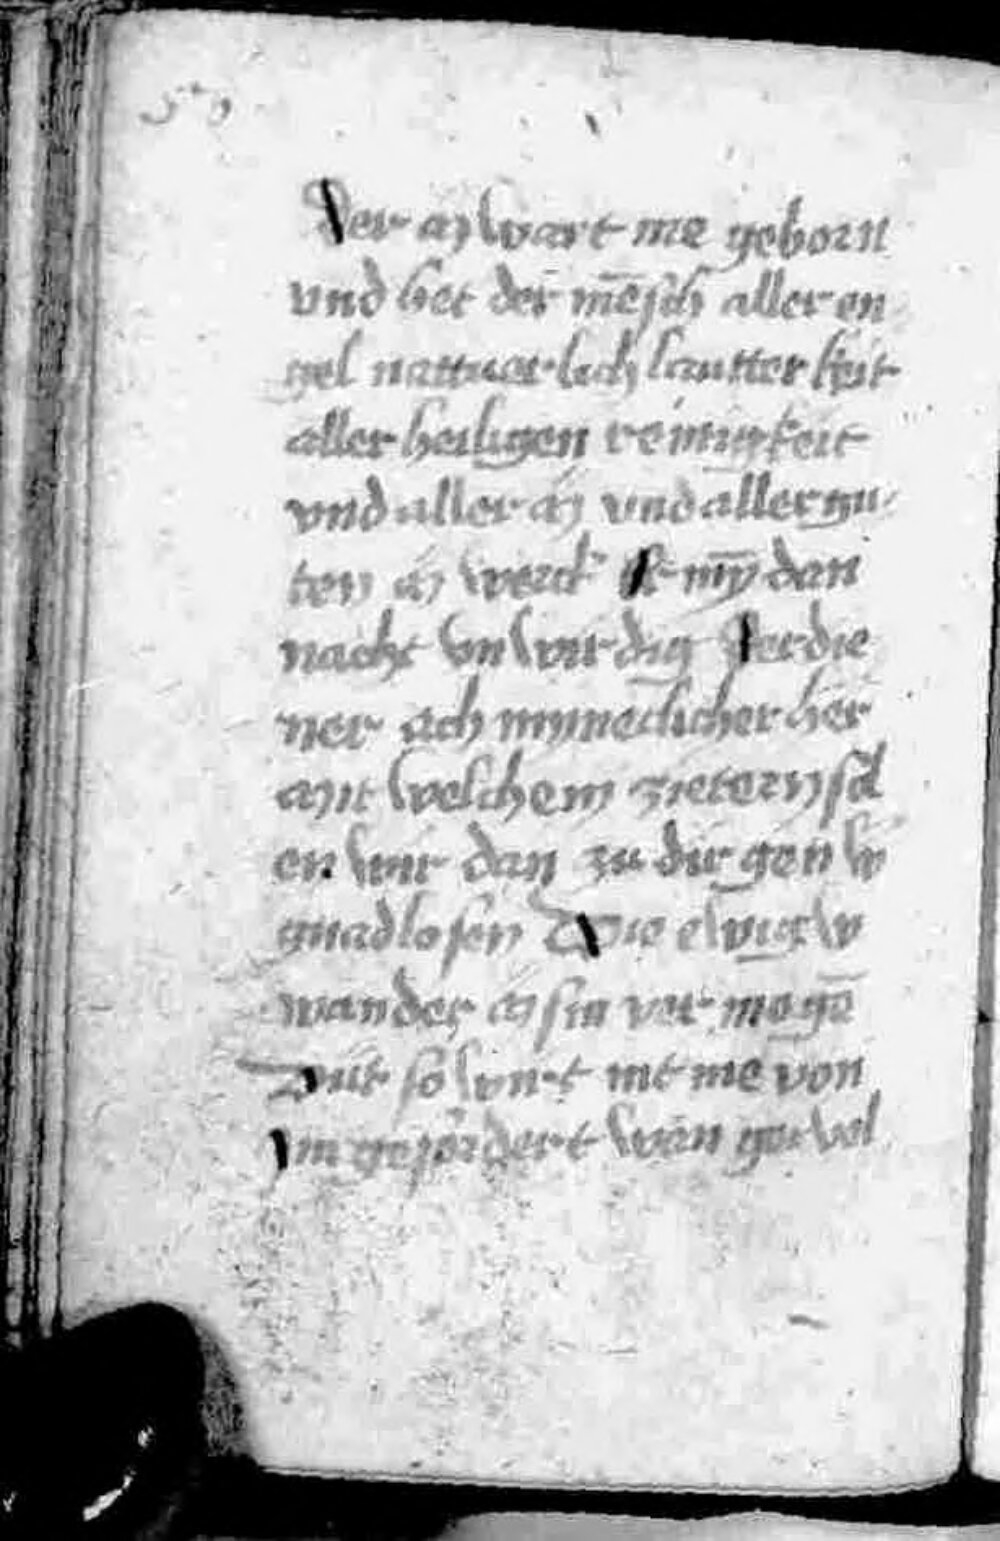 der ay wart me geborn
vnd het der mēsch aller en
gel nattuer lich lautter keit
aller heiligen reinigkeit
vnd aller vnd aller gu
ten werck ist my dan
nacht vnwirdig der die
ner ach mynneclicher her
mit welchem zieteren sol
en wir dan zu dir gen w
gnadlosen Die ewig w
wan der sin ver mogē
Dut so wirt nit me von
Im gefordert wan gar vol